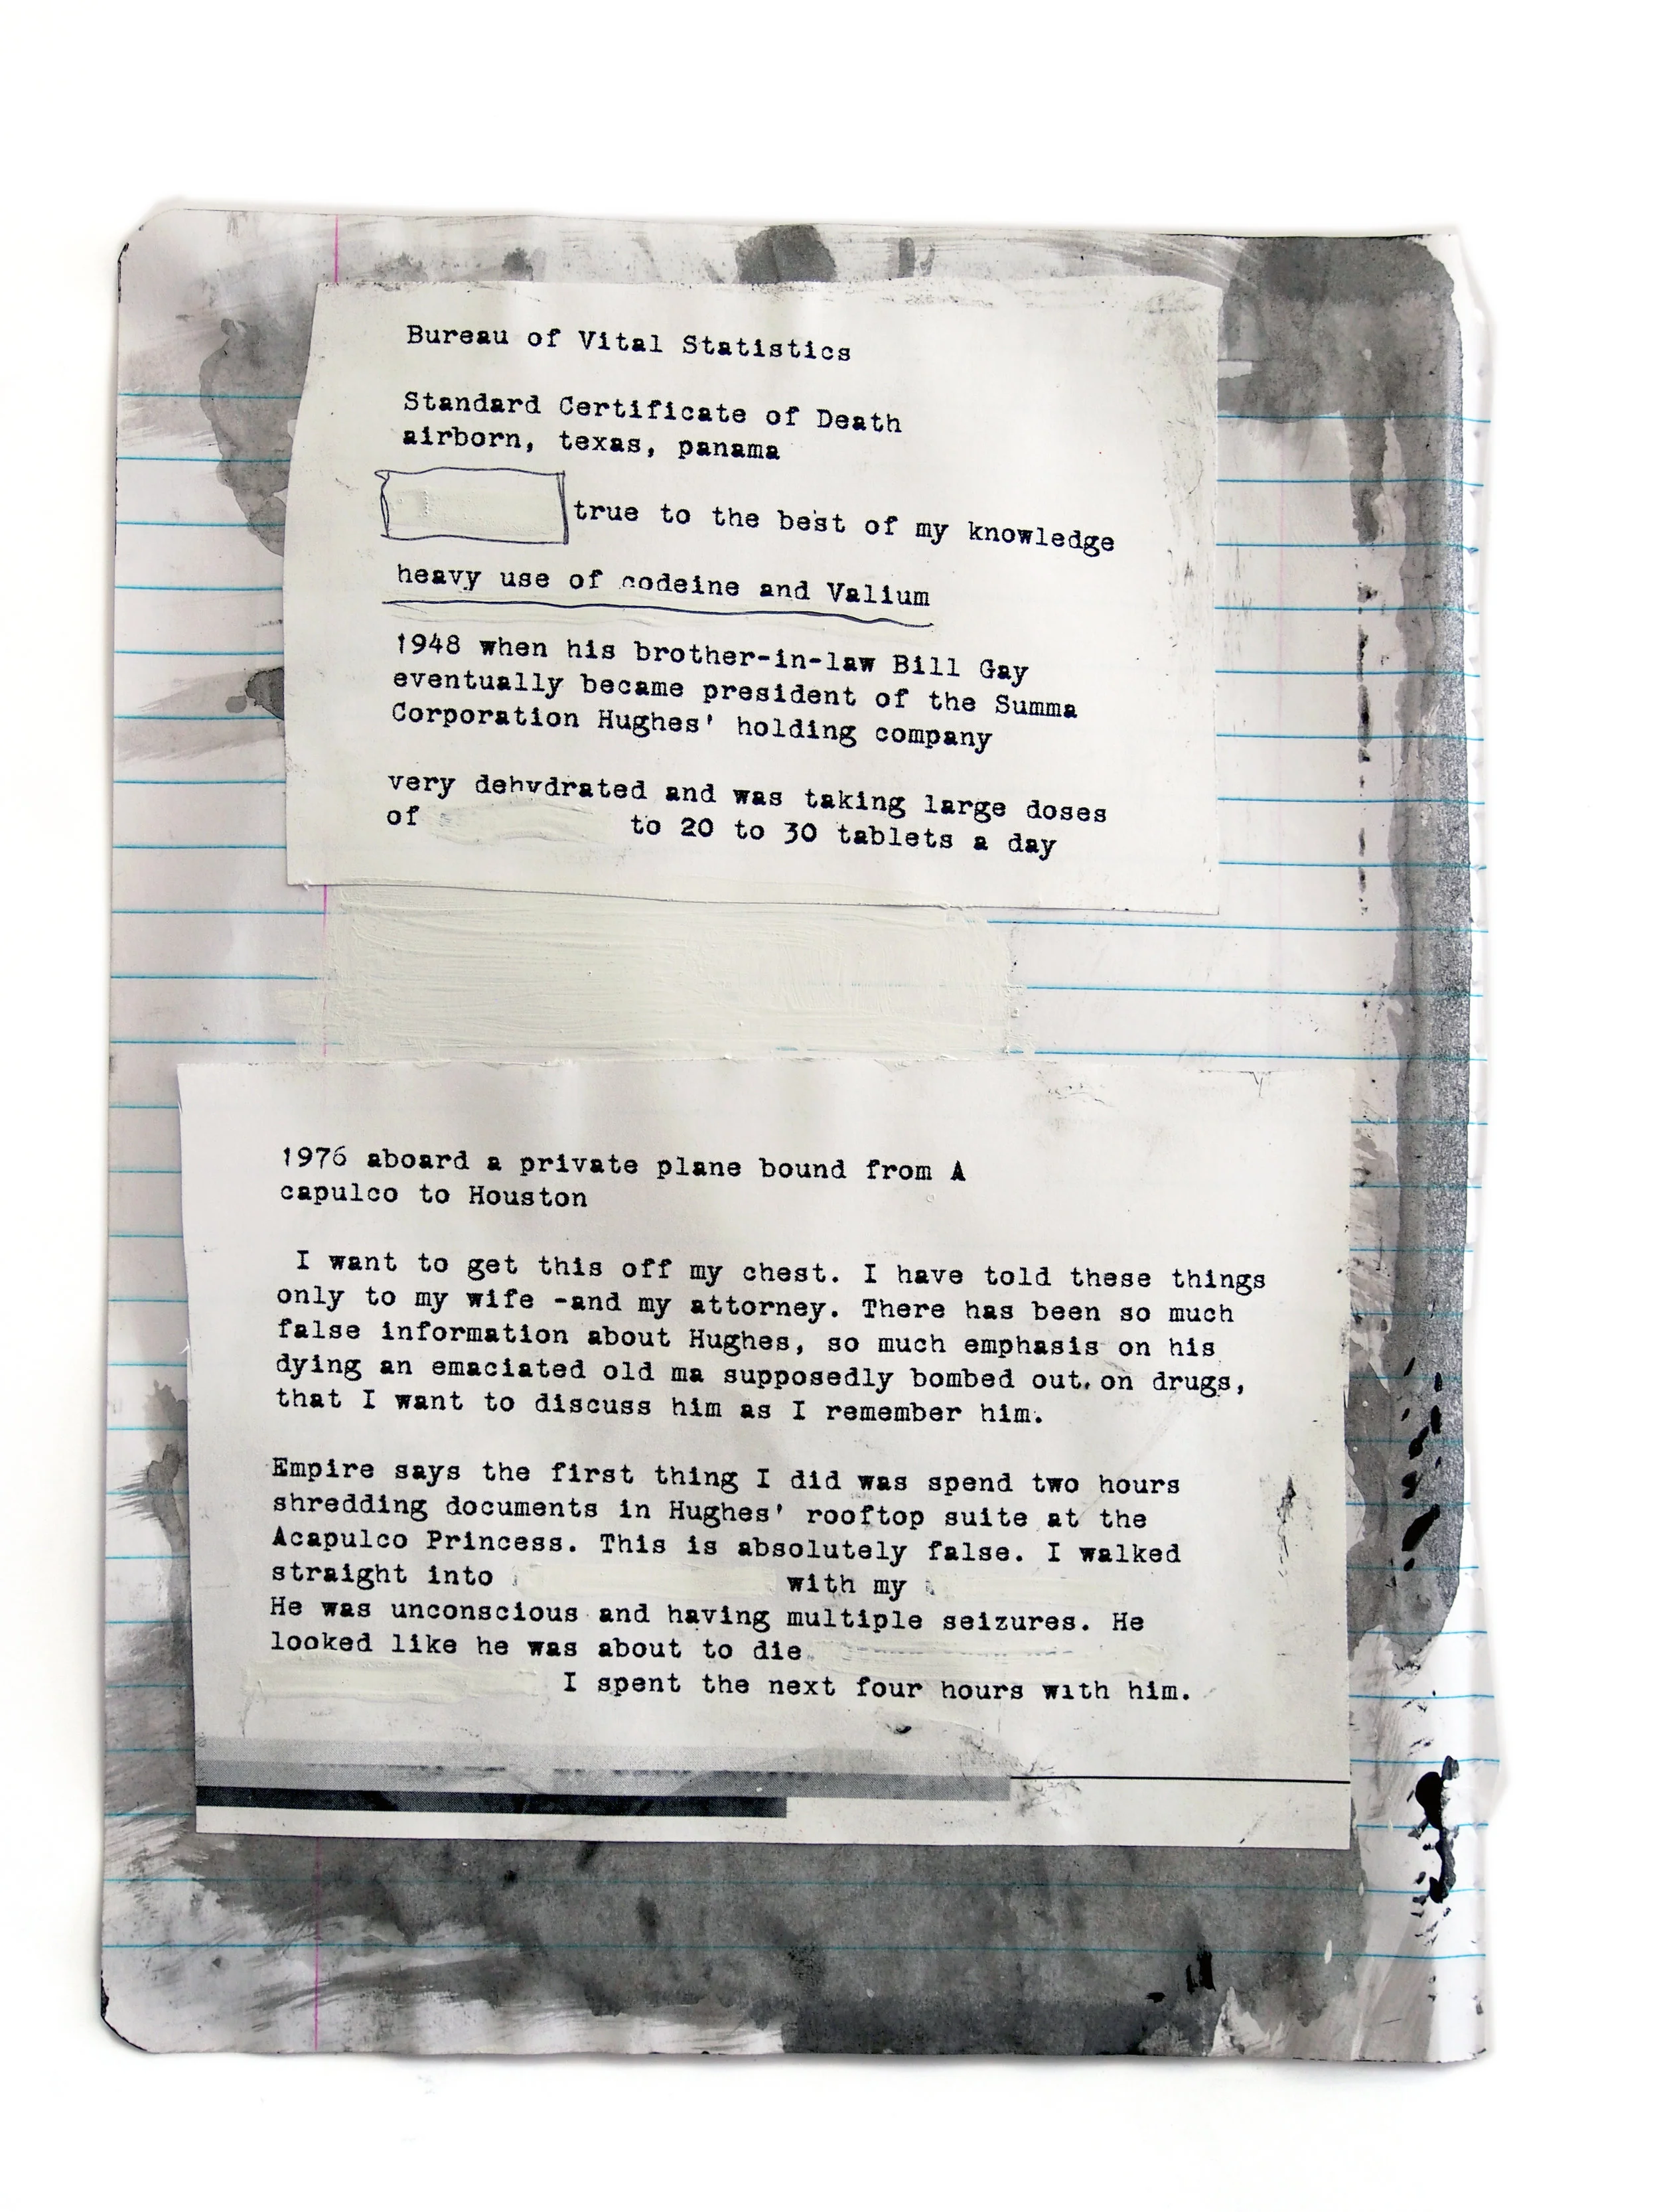 Bureau of Vital Statistics
Standard Certificate of Death
airborn, texas, panama
true to the best of my knowledge
heavy use of codeine and Valium
1948 when his brother-in-law Bill Gay
eventually became president of the Summa
Corporation Hughes' holding company
very dehydrated and was taking large doses
of to 20 to 30 tablets a day
1976 aboard a private plane bound from A
capulco to Houston
I want to get this off my chest. I have told these things
only to my wife -and my attorney. There has been so much
false information about Hughes, so much emphasis on his
dying an emaciated old ma supposedly bombed out. on drugs,
that I want to discuss him as I remember him.
Empire says the first thing I did was spend two hours
shredding documents in Hughes' rooftop suite at the
Acapulco Princess. This is absolutely false. I walked
straight into with my
He was unconscious and having multiple seizures. He
looked like he was about to die
I spent the next four hours with him.